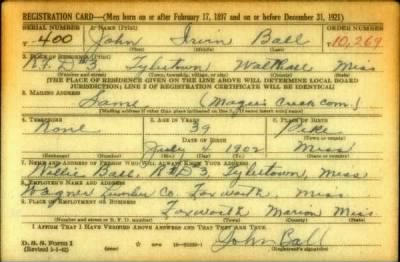 REGISTRATION CARD—(Men born on or after February 17, 1897 and on or before December 31, 1921)
SERIAL NUMBER 1. NAME (Print) ORDER NUMBER
400 John Irvin Ball 10,269
(First) (Middle) (Last)
2. PLACE OF RESIDENCE (Print)
Rt. D #3 Tylertown Walthall Miss
(Number and street) (Town, township, village, or city) (County) (State)
[THE PLACE OF RESIDENCE GIVEN ON THE LINE ABOVE WILL DETERMINE LOCAL BOARD
JURISDICTION; LINE 2 OF REGISTRATION CERTIFICATE WILL BE IDENTICAL]
3. MAILING ADDRESS
Same (Magees Creek Com.)
[Mailing address if other than place indicated on line 2. If same insert word same]
4. TELEPHONE 5. AGE IN YEARS 6. PLACE OF BIRTH
None 39 Pike
DATE OF BIRTH (Town or county)
July 4 1902 Miss
(Mo.) (Day) (Yr.) (State or country)
7. NAME AND ADDRESS OF PERSON WHO WILL ALWAYS KNOW YOUR ADDRESS
Ball, R#D 3, Tylertown, Miss
8. EMPLOYER'S NAME AND ADDRESS
Wagner Lumber Co. Foxworth, Miss
9. PLACE OF EMPLOYMENT OR BUSINESS
Foxworth Marion Miss
(Number and street or R. F. D. number) (Town) (County) (State)
I AFFIRM THAT I HAVE VERIFIED ABOVE ANSWERS AND THAT THEY ARE TRUE.
D. S. S. Form 1
(Revised 4-1-42) (over) John Ball
(Registrant's signature)